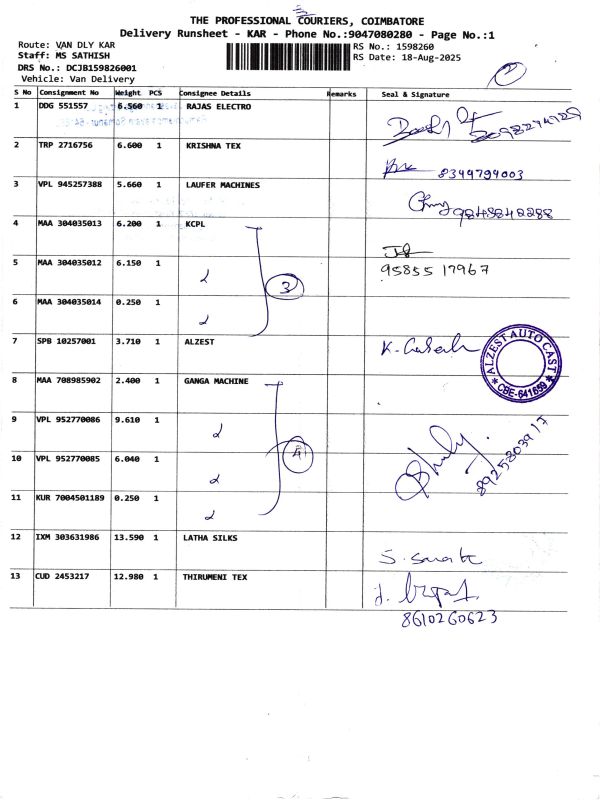 THE PROFESSIONAL COURIERS, COIMBATORE
Delivery Runsheet - KAR - Phone No.:9047080280 - Page No.:1
Route: VAN DLY KAR RS No.: 1598260
Staff: MS SATHISH RS Date: 18-Aug-2025
DRS No.: DCJB159826001
Vehicle: Van Delivery
2
S No Consignment No Weight PCS Consignee Details Remarks Seal & Signature
1 DDG 551557 6.560 1 RAJAS ELECTRO
2 TRP 2716756 6.600 1 KRISHNA TEX
8344794003
3 VPL 945257388 5.660 1 LAUFER MACHINES
9843848288
4 MAA 304035013 6.200 1 KCPL
5 MAA 304035012 6.150 1
9585517967
3
6 MAA 304035014 0.250 1
7 SPB 10257001 3.710 1 ALZEST
ALZEST AUTO CAST
CBE-641659
8 MAA 708985902 2.400 1 GANGA MACHINE
9 VPL 952770086 9.610 1
8925803917
4
10 VPL 952770085 6.040 1
11 KUR 7004501189 0.250 1
12 IXM 303631986 13.590 1 LATHA SILKS
13 CUD 2453217 12.980 1 THIRUMENI TEX
8610260623